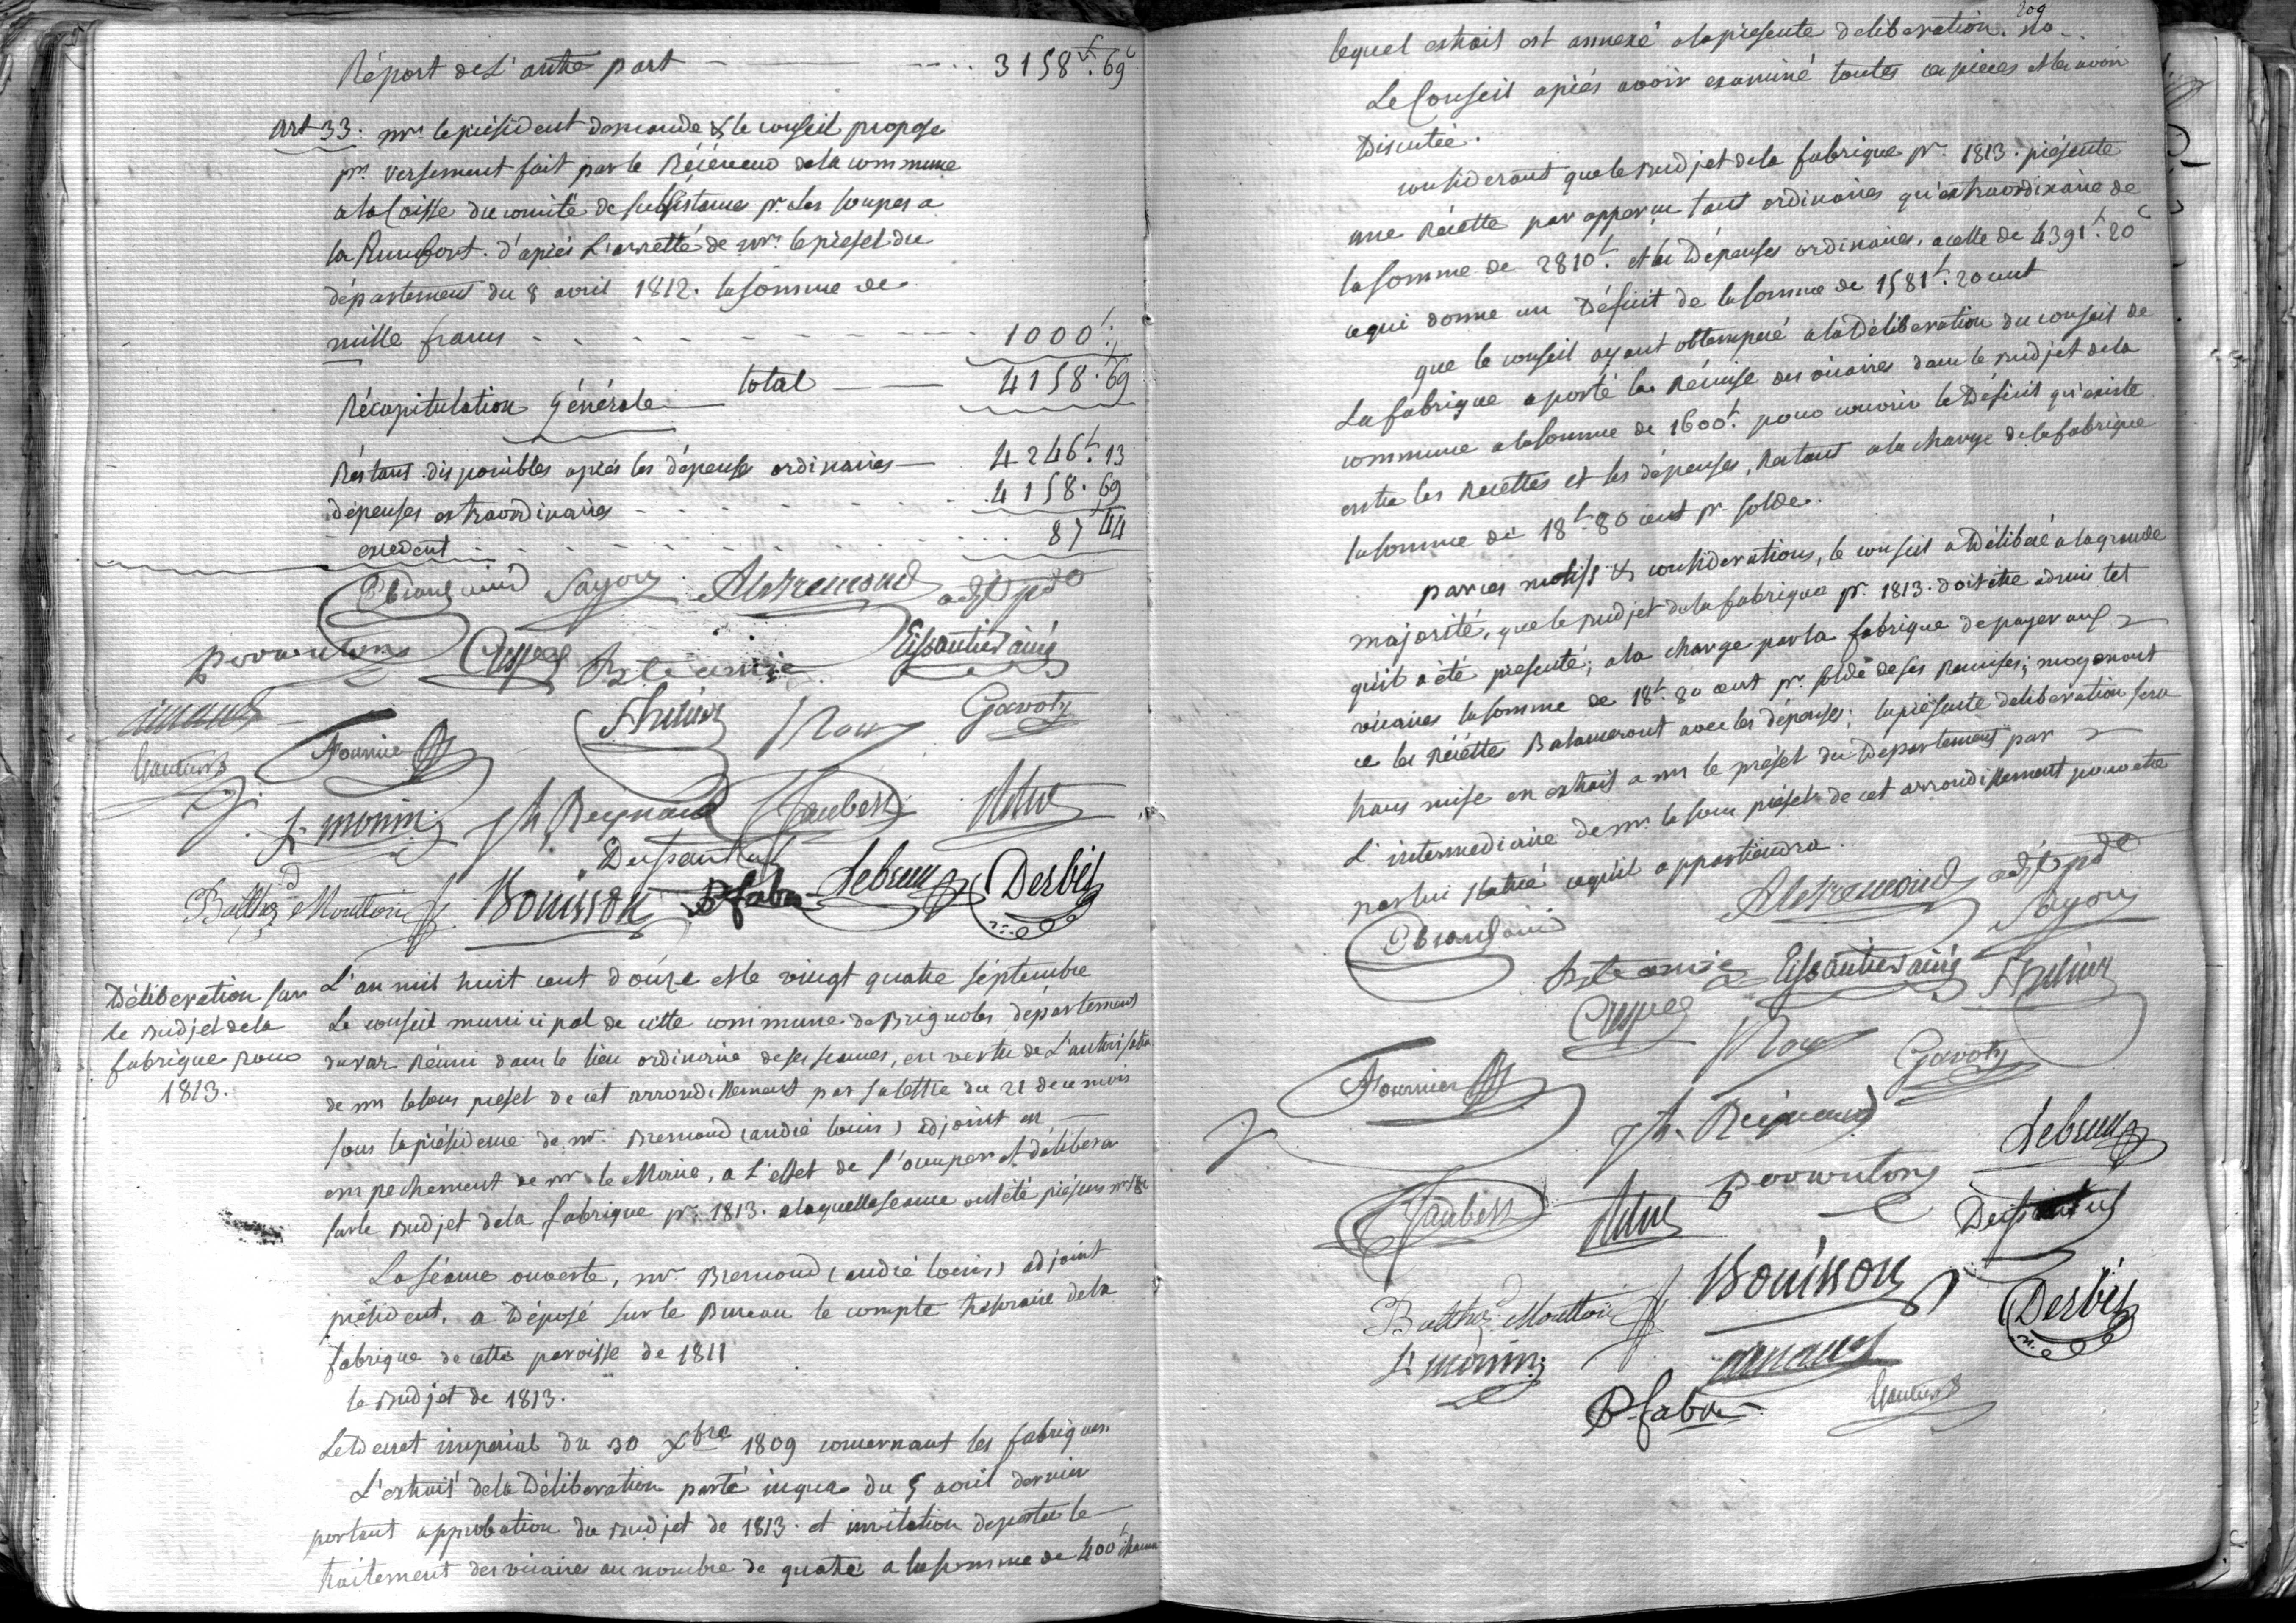 Réport de L'autre part - 3158f. 69c
Art 33. mr. le président demande & le conseil propose
pr. versement fait par le Récéveur dela commune
a la Caisse du comité de subsistance pr. Les soupes a
la Rumfort. d'après L'arretté de mr. le préfet du
département du 8 avril 1812. la somme de
mille francs - 1000f.
total - 4158. 69
Récapitulation Générale
Réstant disponibles après les dépenses ordinaires - 4246f. 13
dépenses extraordinaires - 4158. 69
excedent - 87 44
Sayou adjt pdt
Eissautier ainé
Fournier Roux Gavoty
Gautier
h monin Jh Reynaud Jaubert
Balthd Moutton Bouisson P faba Lebrun Desbès
Déliberation sur
le Budjet dela
fabrique pour
1813.
L'an mil huit cent douze et le vingt quatre séptembre
Le conseil municipal de cette commune de Brignoles département
du var Réuni dans le lieu ordinaire de ses séances, en vertu de L'autorisation
de mr le sous préfet de cet arrondissement par sa lettre du 21 de ce mois
sous la présidence de mr. Bremond (andré louis) adjoint en
empechement de mr le Maire, a L'effet de s'occuper et déliberer
sur le Budjet dela fabrique pr. 1813. a laquelle séance ont été présens mrs
La séance ouverte, mr. Bremond (andré louis) adjoint
président, a Déposé sur le Bureau le compte trésoraire dela
fabrique de cette paroisse de 1811
le Budjet de 1813.
Le Decret imperial du 30 Xbre 1809 concernant les fabriques.
L'extrait dela Déliberation du 5 avril dernier
portant approbation du Budjet de 1813. et invitation de porter le
traitement des vicaires au nombre de quatre a la somme de 400f chacun
209
lequel extrait est annexé a la présente déliberation.
Le Conseil après avoir examiné toutes ces pièces et les avoir
Discutée.
considerant que le Budjet dela fabrique pr. 1813. présente
une Récette par apperçu tant ordinaires qu'extraordinaire de
la somme de 2810f. et les Dépenses ordinaires, a celle de 4391f. 20c
ce qui donne un Déficit de la somme de 1581f. 20 cent
que le conseil ayant obtemperé a la Déliberation du conseil de
La fabrique a porté la Rémise des vicaires dans le Budjet dela
commune a la somme de 1600f. pour couvrir le Déficit qu'existe
entre les Recettes et les dépenses, Restant a la charge de la fabrique
la somme de 18f. 80 cent pr. solde.
par ces motifs & considerations, le conseil a Délibéré a la grande
majorité, que le Budjet dela fabrique pr. 1813. doit être admis tel
qu'il a été présenté; a la charge par la fabrique de payer aux
vicaires la somme de 18f. 80 cent pr. solde de ses Remises; moyenant
ce les Récettes Balanceront avec les dépenses; la présente deliberation sera
trans mise en extrait a mr le préfet du Departement par
L'intermediaire de mr. le sous préfet de cet arrondissement pour etre
par lui statué ce qu'il appartiendra.
adjt pdt
Sayou
Eissautier ainé
Roux Gavoty
Fournier
Jh. Reynaud Lebrun
Jaubert
Bouisson
Balthd Moutton Desbès
h monin
P faba Gautier